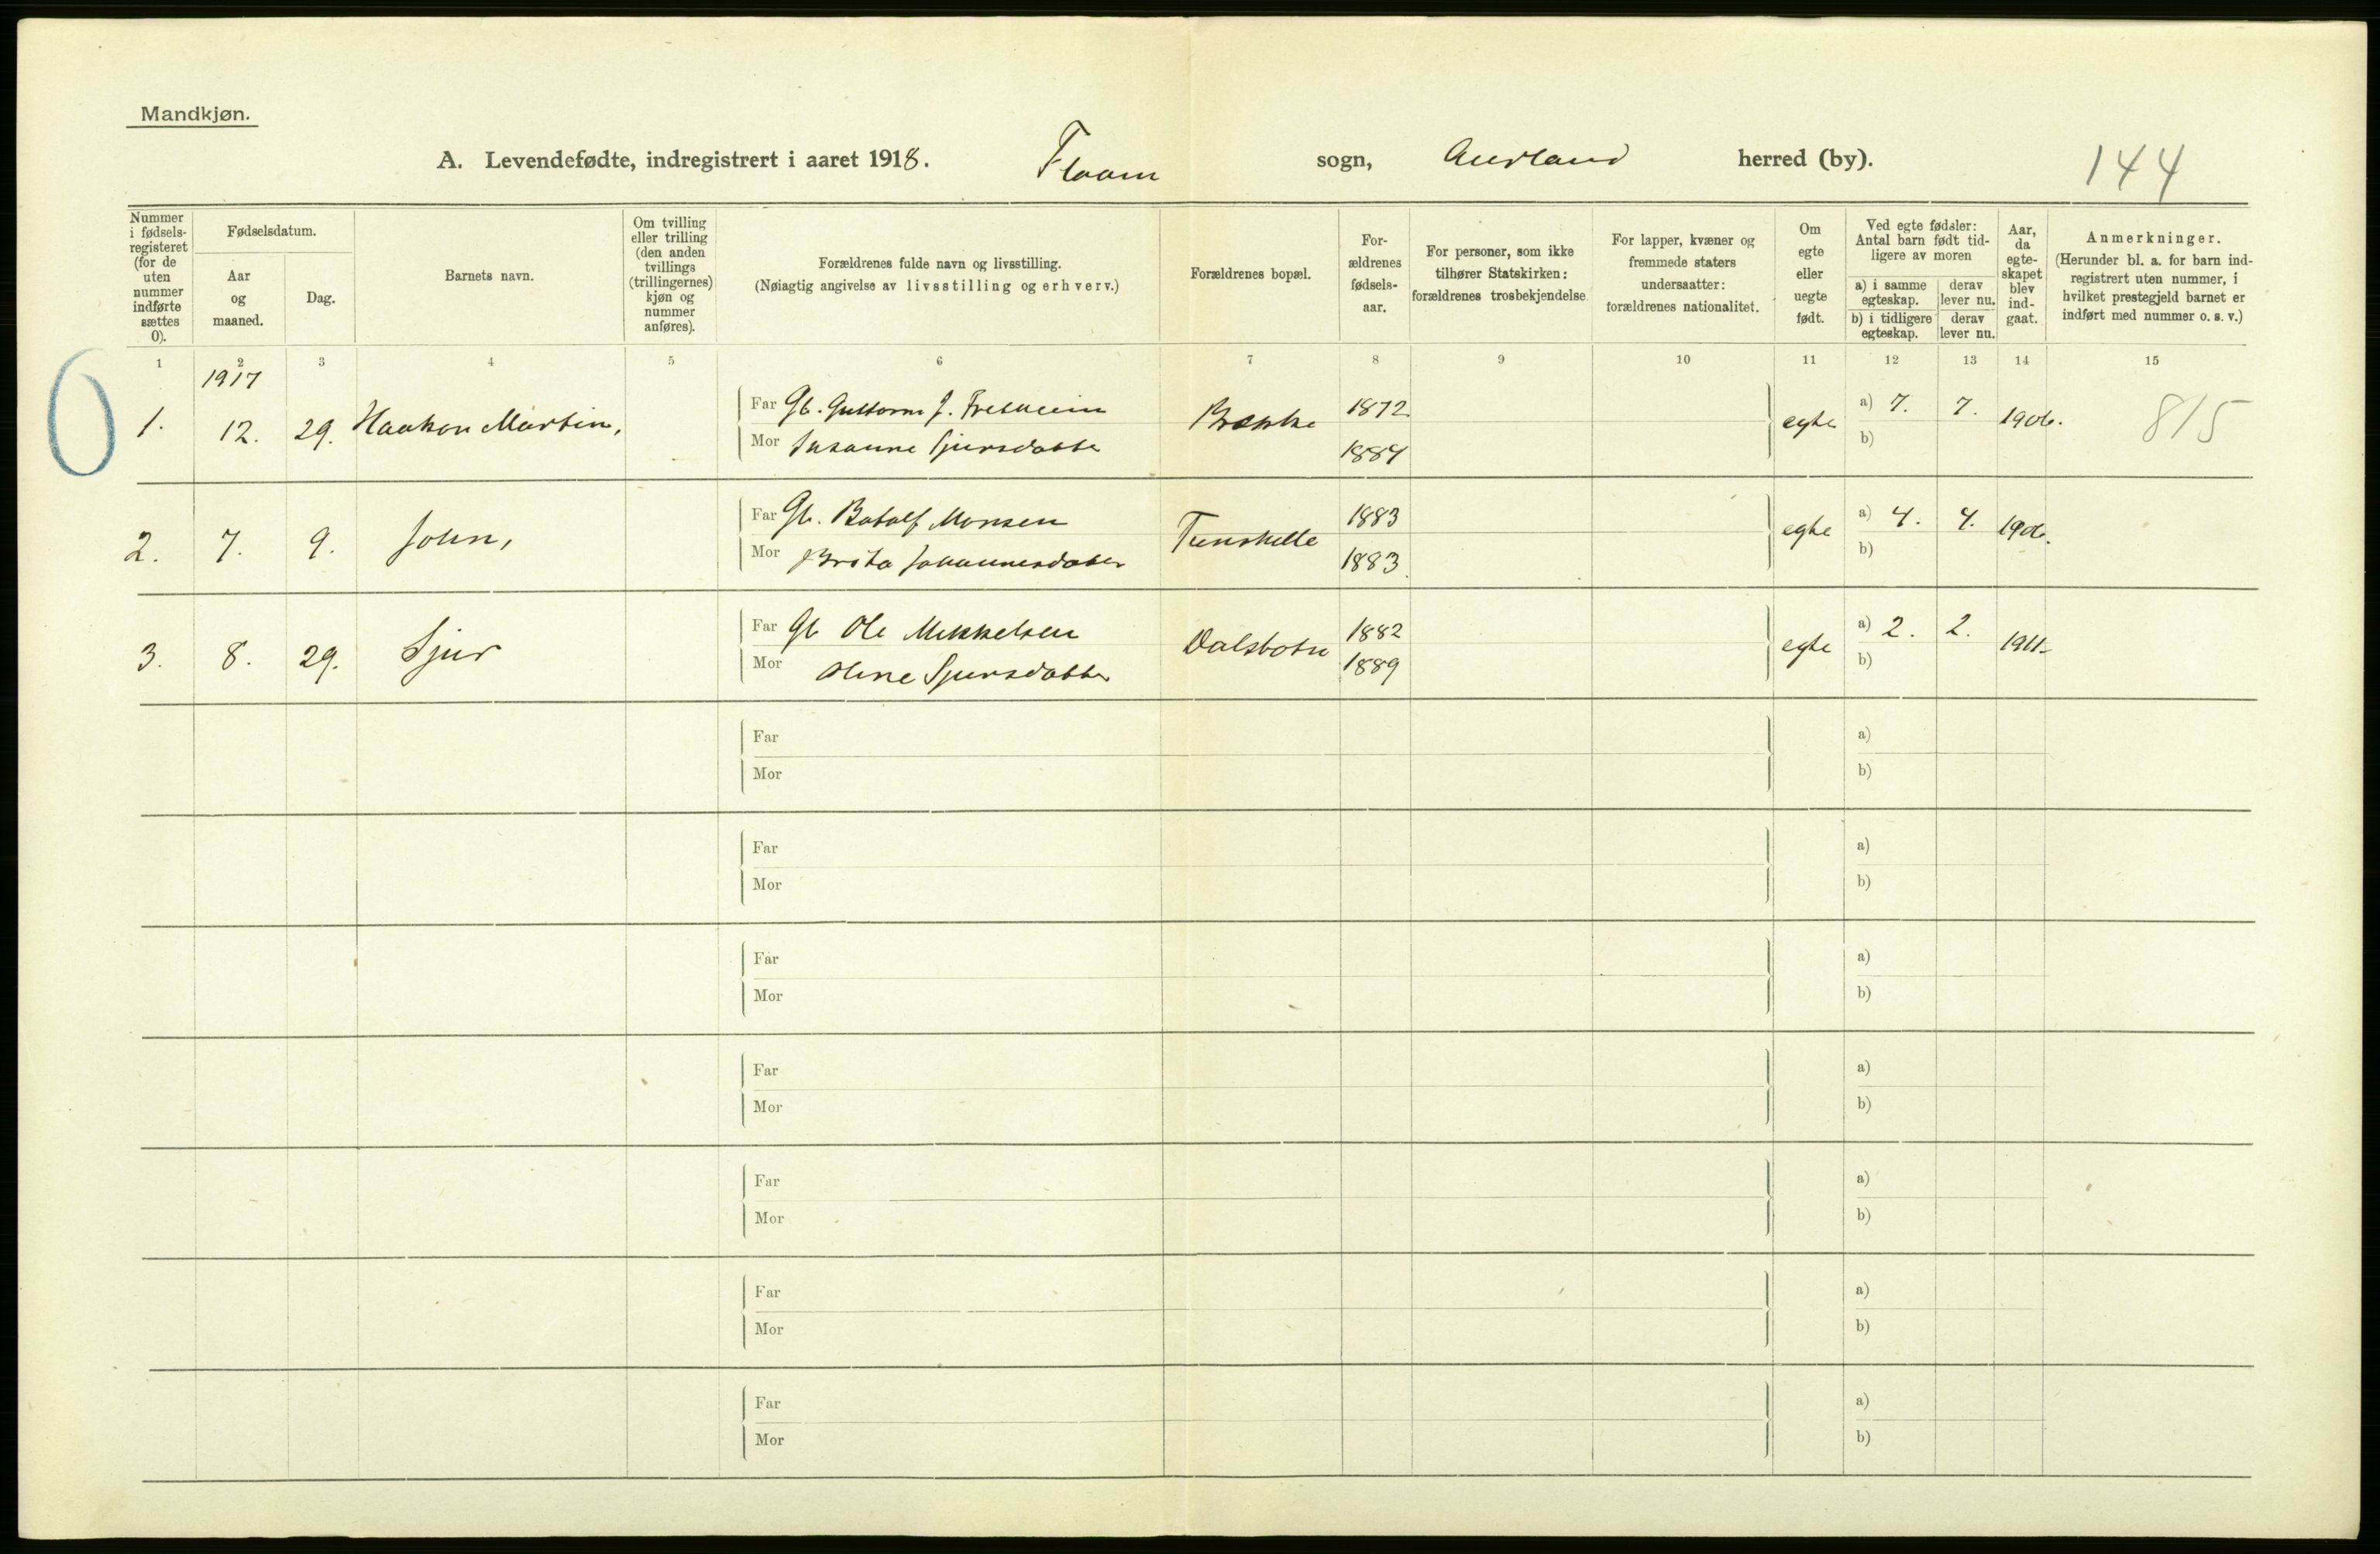 Mandkjøn.
A. Levendefødte, indregistrert i aaret 1918. Flaam sogn, Aurland herred (by). 144
Nummer i fødsels-registeret (for de uten nummer indførte sættes 0).
Fødselsdatum.
Aar og maaned.
Dag.
Barnets navn.
Om tvilling eller trilling (den anden tvillings (trillingernes) kjøn og nummer anføres).
Forældrenes fulde navn og livsstilling.
(Nøiagtig angivelse av livsstilling og erhverv.)
Forældrenes bopæl.
For-ældrenes fødsels-aar.
For personer, som ikke tilhører Statskirken: forældrenes trosbekjendelse
For lapper, kvæner og fremmede staters undersaatter: forældrenes nationalitet.
Om egte eller uegte født.
Ved egte fødsler: Antal barn født tid-ligere av moren
a) i samme egteskap.
derav lever nu.
b) i tidligere egteskap.
derav lever nu.
Aar, da egte-skapet blev ind-gaat.
Anmerkninger.
(Herunder bl. a. for barn ind-registrert uten nummer, i hvilket prestegjeld barnet er indført med nummer o. s. v.)
1 2 3 4 5 6 7 8 9 10 11 12 13 14 15
0
1917
1. 12. 29. Haakon Martin, Far Gb. Guttorm J. Fretheim 1872 egte a) 7. 7. 1906. 815
Mor Susanne Sjursdatter 1884 b)
2. 7. 9. John, Far Gb. Botolf Monsen Tunshelle 1883 egte a) 4. 4. 1906.
Mor Brita Johannesdatter 1883 b)
3. 8. 29. Sjur Far Gb Ole Mikkelsen Dalsbotn 1882 egte a) 2. 2. 1911.
Mor Oline Sjursdatter 1889 b)
Far a)
Mor b)
Far a)
Mor b)
Far a)
Mor b)
Far a)
Mor b)
Far a)
Mor b)
Far a)
Mor b)
Far a)
Mor b)